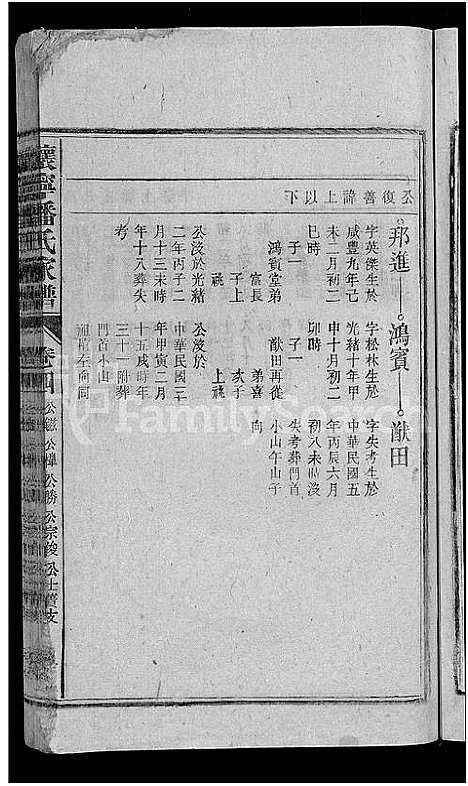 公復善諱上以下
邦進——鴻賓——猷田
字英傑生於
咸豐九年己
未二月初二
巳時
子一
鴻賓堂弟
富長
子上
祧
公沒於光緒
二年丙子二
月十三未時
年十八葬失
考
字松林生於
光緒十年甲
申十月初二
卯時
子一
猷田再從
弟喜
亥子
上祧
公沒於
中華民國三
年甲寅二月
十五戌時年
三十一附葬
門首小山
祖墳全向同
字失考生於
中華民國五
年丙辰六月
初八未時沒
失考葬門首
小山午山子
向
懷寧潘氏家譜 卷四
FamilySearch